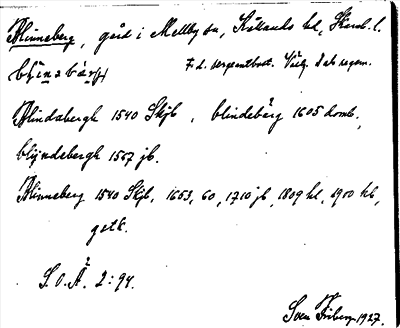 Blinneberg, gård i Mellby sn, Kållands hd, Skarab. l.
F. d. sergeantbost. Västg. Dals regem.
Blindabergh 1540 Skjb, blindebärg 1605 domb,
blijndebergh 1567 jb.
Blinneberg 1540 Skjb, 1653, 60, 1710 jb, 1809 hl, 1900 hb,
gstk.
S.O.Ä. 2:94.
Sven Friberg 1927.